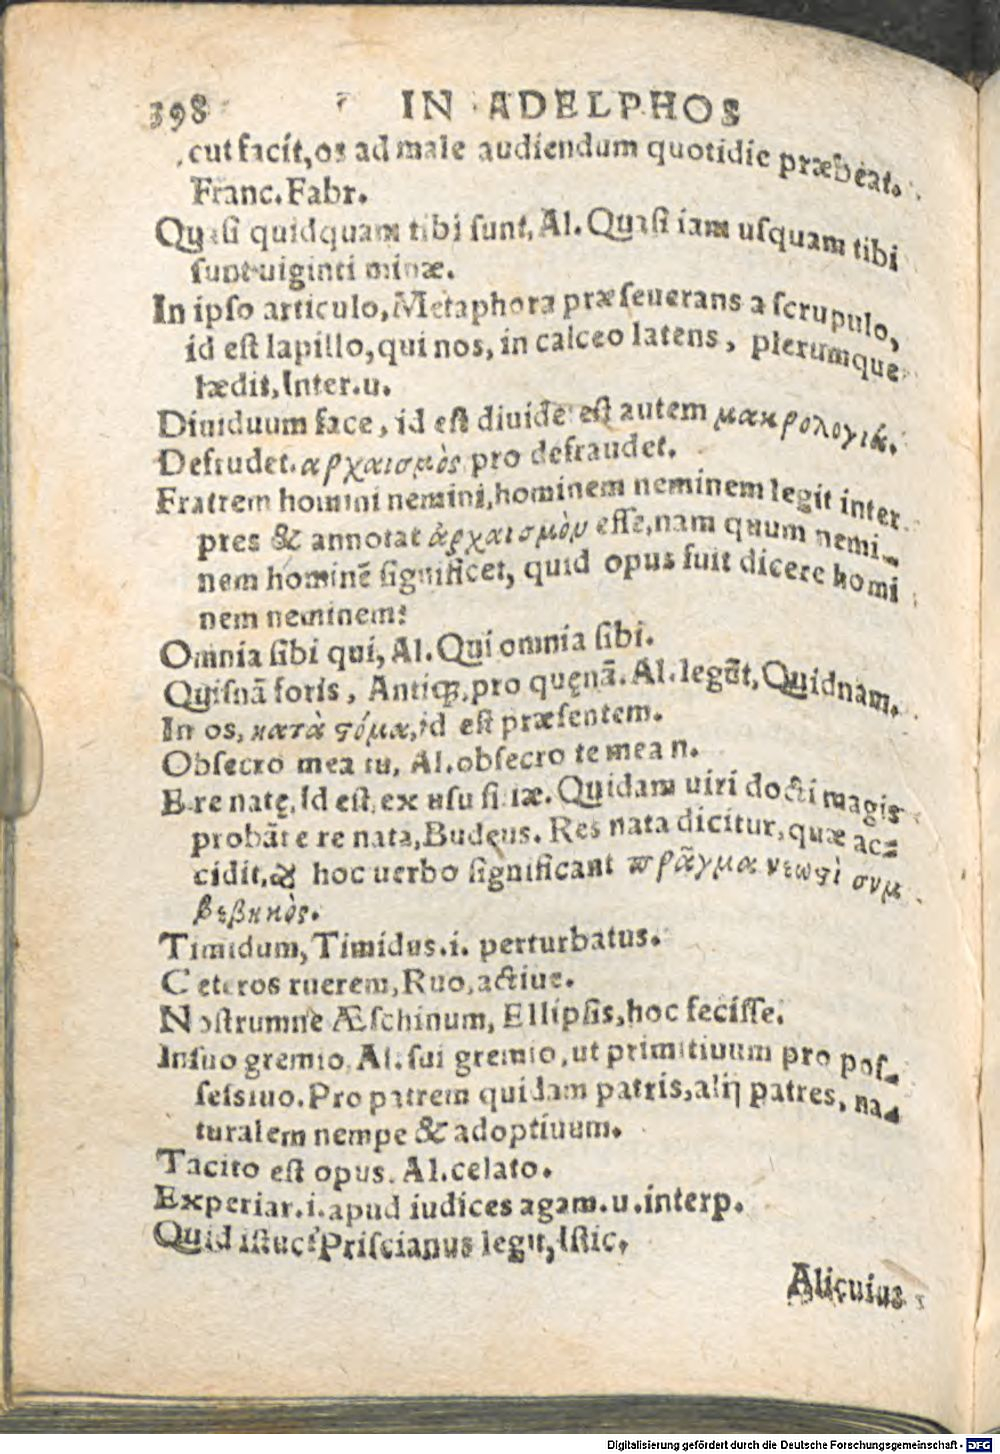 398 IN ADELPHOS
cut facit, os ad male audiendum quotidie præbeat.
Franc. Fabr.
Quasi quidquam tibi sunt, Al. Quasi iam usquam tibi
sunt uiginti minæ.
In ipso articulo, Metaphora præseuerans a scrupulo,
id est lapillo, qui nos, in calceo latens, plerumque
lædit, Inter. u.
Diuiduum face, id est diuide est autem μακρολογιά.
Defrudet. αρχαισμὸς pro defraudet.
Fratrem homini nemini, hominem neminem legit inter
pres & annotat ἀρχαισμὸν esse, nam quum nemi-
nem hominē significet, quid opus fuit dicere homi
nem neminem?
Omnia sibi qui, Al. Qui omnia sibi.
Quisnā foris, Antiq;, pro quęnā. Al. legūt, Quidnam.
In os, κατὰ ϛόμα, id est præsentem.
Obsecro mea tu, Al. obsecro te mea n.
E re natę, Id est, ex usu filiæ. Quidam uiri docti magis
probāt e re nata, Budęus. Res nata dicitur, quæ ac-
cidit, & hoc uerbo significant πρᾶγμα νεωϛὶ συμ
βεβηκὸς.
Timidum, Timidus. i. perturbatus.
Ceteros ruerem, Ruo, actiue.
Nostrumne Æschinum, Ellipsis, hoc fecisse.
In suo gremio. Al. sui gremio, ut primitiuum pro pos-
sessiuo. Pro patrem quidam patris, alij patres, na-
turalem nempe & adoptiuum.
Tacito est opus. Al. celato.
Experiar. i. apud iudices agam. u. interp.
Quid istuc? Priscianus legit, Istic.
Alicuius
Digitalisierung gefördert durch die Deutsche Forschungsgemeinschaft - DFG